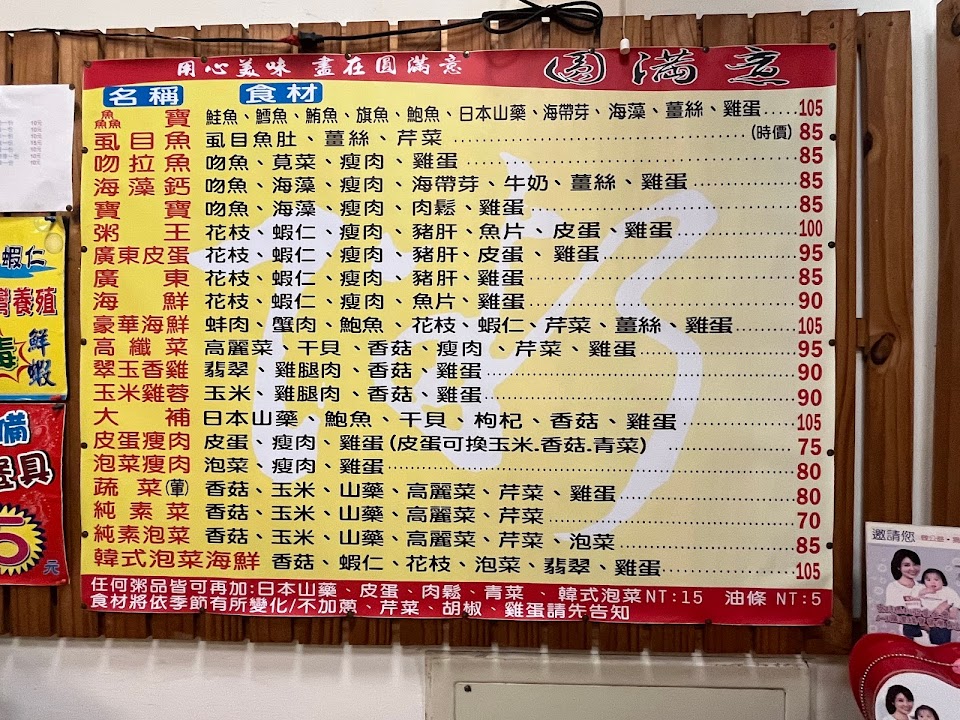 用心美味 盡在圓滿意 圓滿意
名稱 食材
鱻寶 鮭魚、鱈魚、鮪魚、旗魚、鮑魚、日本山藥、海帶芽、海藻、薑絲、雞蛋.....105
虱目魚 虱目魚肚、薑絲、芹菜..........(時價) 85
吻拉魚 吻魚、莧菜、瘦肉、雞蛋..........85
海藻鈣 吻魚、海藻、瘦肉、海帶芽、牛奶、薑絲、雞蛋..........85
寶寶 吻魚、海藻、瘦肉、肉鬆、雞蛋..........85
粥王 花枝、蝦仁、瘦肉、豬肝、魚片、皮蛋、雞蛋..........100
廣東皮蛋 花枝、蝦仁、瘦肉、豬肝、皮蛋、雞蛋..........95
廣東 花枝、蝦仁、瘦肉、豬肝、雞蛋..........85
海鮮 花枝、蝦仁、瘦肉、魚片、雞蛋..........90
豪華海鮮 蚌肉、蟹肉、鮑魚、花枝、蝦仁、芹菜、薑絲、雞蛋..........105
高纖菜 高麗菜、干貝、香菇、瘦肉、芹菜、雞蛋..........95
翠玉香雞 翡翠、雞腿肉、香菇、雞蛋..........90
玉米雞蓉 玉米、雞腿肉、香菇、雞蛋..........90
大補 日本山藥、鮑魚、干貝、枸杞、香菇、雞蛋..........105
皮蛋瘦肉 皮蛋、瘦肉、雞蛋(皮蛋可換玉米.香菇.青菜)..........75
泡菜瘦肉 泡菜、瘦肉、雞蛋..........80
蔬菜(葷) 香菇、玉米、山藥、高麗菜、芹菜、雞蛋..........80
純素菜 香菇、玉米、山藥、高麗菜、芹菜..........70
純素泡菜 香菇、玉米、山藥、高麗菜、芹菜、泡菜..........85
韓式泡菜海鮮 香菇、蝦仁、花枝、泡菜、翡翠、雞蛋..........105
任何粥品皆可再加:日本山藥、皮蛋、肉鬆、青菜、韓式泡菜NT:15 油條 NT:5
食材將依季節有所變化/不加蔥、芹菜、胡椒、雞蛋請先告知
蝦仁
養殖
鮮蝦
備
具
5元
邀請您